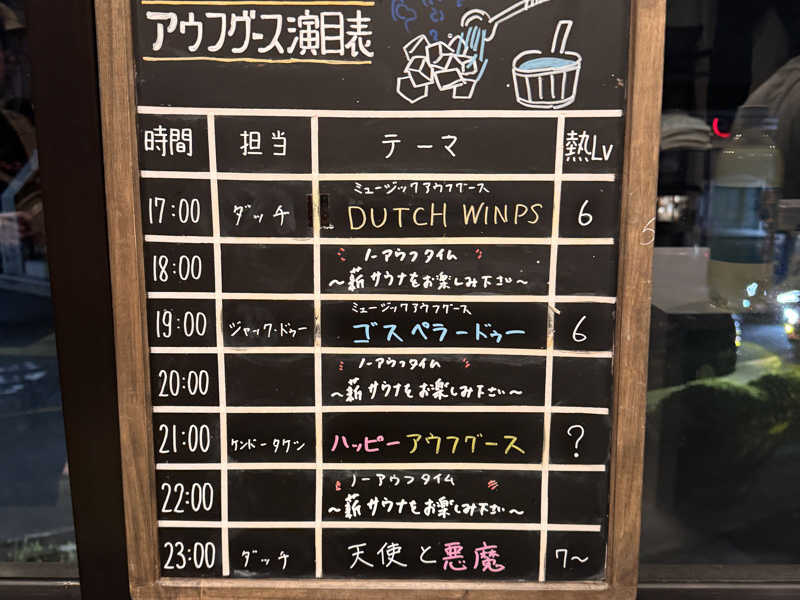 アウフグース演目表
時間 担当 テーマ 熱Lv
ミュージックアウフグース
17:00 ダッチ DUTCH WINPS 6
ノーアウフタイム
18:00 ～薪サウナをお楽しみ下さい～
ミュージックアウフグース
19:00 ジャック・ドゥー ゴスペラードゥー 6
ノーアウフタイム
20:00 ～薪サウナをお楽しみ下さい～
21:00 ケンドータケシ ハッピーアウフグース ?
ノーアウフタイム
22:00 ～薪サウナをお楽しみ下さい～
23:00 ダッチ 天使と悪魔 7～